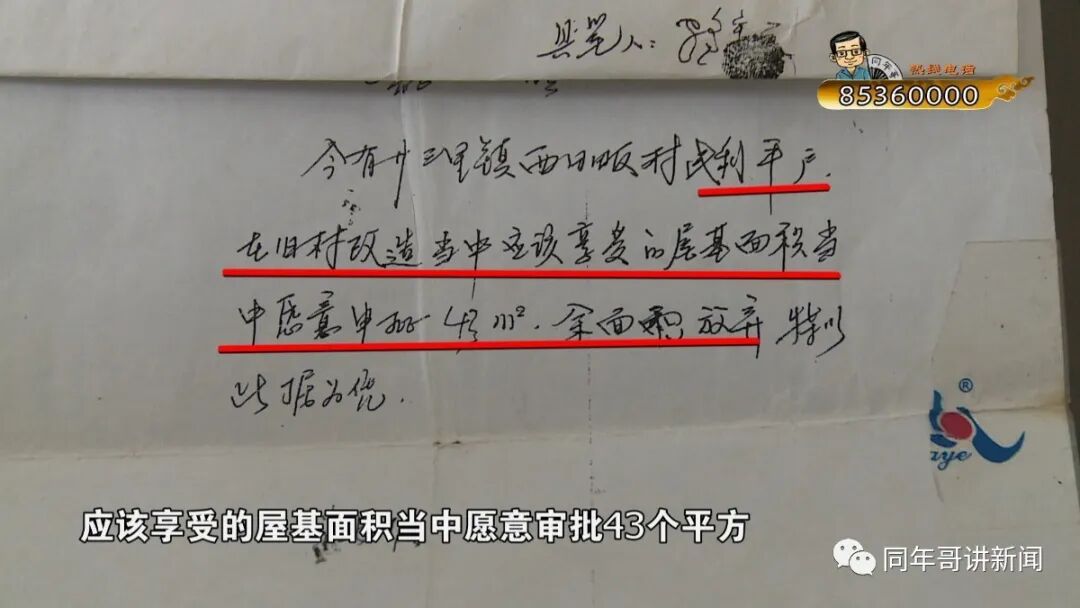 具茔人:
同年哥
热线电话
85360000
今有廿三里镇西田畈村民利平户.
在旧村改造当中应该享受的屋基面积当
中愿意审批43m². 余面积放弃 特以
此据为凭.
®
aye
应该享受的屋基面积当中愿意审批43个平方
同年哥讲新闻